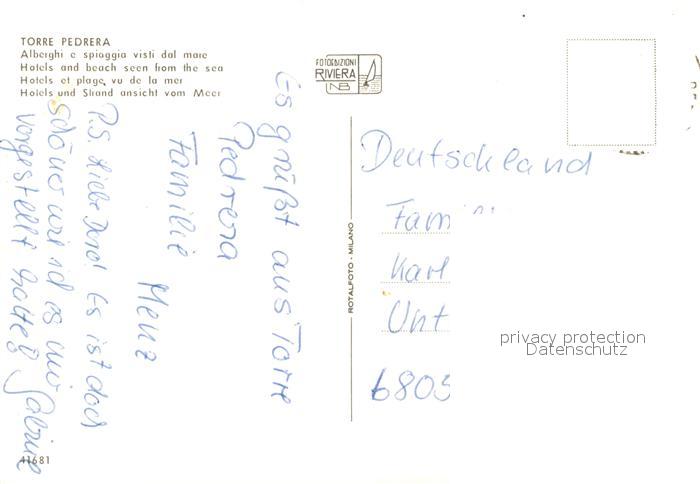 TORRE PEDRERA
Alberghi e spiaggia visti dal mare
Hotels and beach seen from the sea
Hotels et plage, vu de la mer
Hotels und Strand ansicht vom Meer
FOTOEDIZIONI
RIVIERA
NB
Es grüßt aus Torre
Pedrera
Familie
Menz
P.S. Liebe Doro! Es ist doch
schöner wie ich es mir
vorgestellt hatte! Sabine
ROTALFOTO - MILANO
Deutschland
Fam
Karl
Unt
6803
privacy protection
Datenschutz
41681